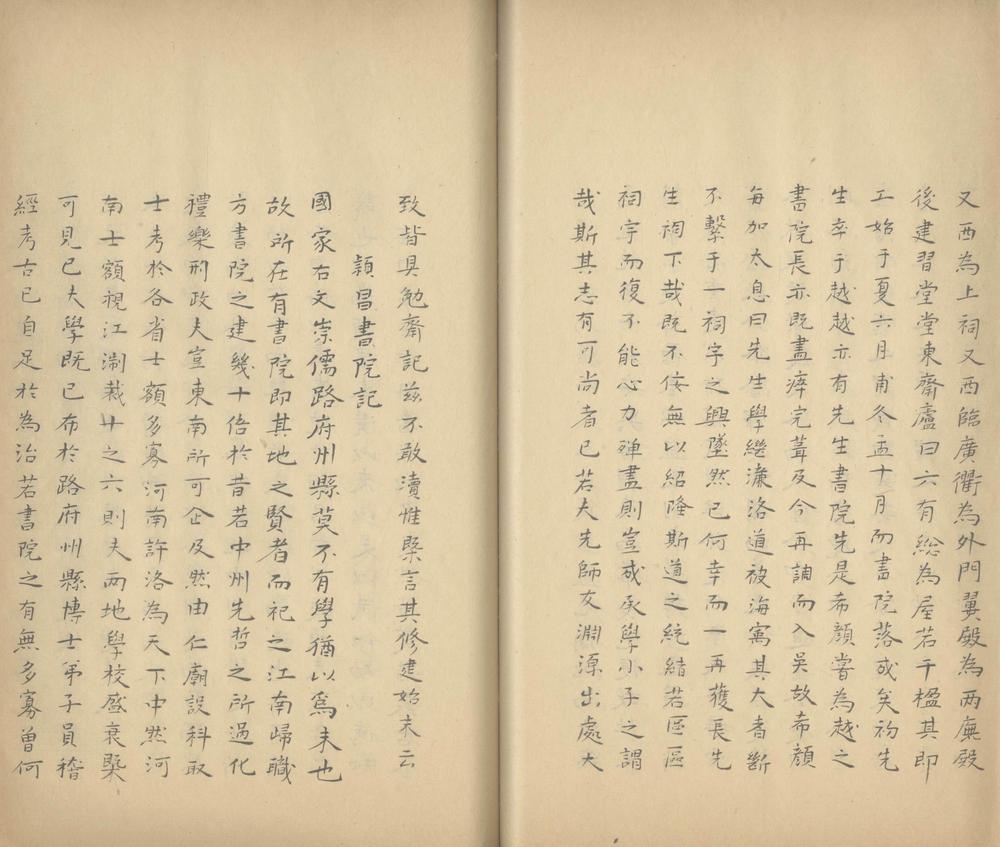 又西為上祠又西臨廣衢為外門翼殿為两廡殿
後建習堂堂東齋廬曰六有総為屋若干楹其即
工始于夏六月甫冬孟十月而書院落成矣初先
生卒于越越亦有先生書院先是希顔嘗為越之
書院長亦既盡瘁完葺及今再調而入吴故希顔
每加太息曰先生學繼濂洛道被海寓其大者断
不繫于一祠宇之興墜然已何幸而一再獲長先
生祠下哉既不侫無以紹隆斯道之統緒若區區
祠宇而復不能心力殫盡則豈成承學小子之謂
哉斯其志有可尚者已若夫先師友淵源出處大
致皆具勉齋記兹不敢瀆惟槩言其修建始末云
頴昌書院記
國家右文崇儒路府州縣莫不有學猶以為未也
故所在有書院即其地之賢者而祀之江南歸職
方書院之建幾十倍於昔若中州先哲之所過化
禮樂刑政夫豈東南所可企及然由仁廟設科取
士考於各省士額多寡河南許洛為天下中然河
南士額視江淛裁廿之六則夫两地學校盛衰槩
可見已夫學既已布於路府州縣博士弟子員稽
經考古已自足於為治若書院之有無多寡曽何